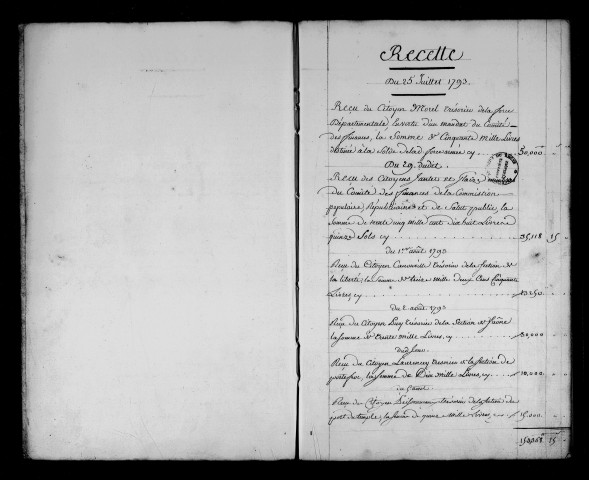 Recette
Du 25 Juillet 1793.
Reçu du Citoyen Morel trésorier de la force
Départementale, en vertu d'un mandat du Comité
des finances, la Somme de Cinquante Mille Livres
destiné à la Solde de lad. force armée cy 50,000
Du 29 dudit.
Reçu des Citoyens et
du Comité des finances de la Commission
populaire Républicaine et de Salut public, la
Somme de trente cinq Mille cent dix huit Livres
quinze Sols cy 35,118 15
du 1er août 1793
Reçu du Citoyen trésorier de la Section de
la liberté, la Somme de treize Mille deux Cens Cinquante
Livres, cy 13250
Du 2 août 1793
Reçu du Citoyen trésorier de la Section de Saône
la Somme de trente Mille Livres, cy 30,000
dud. jour
Reçu du Citoyen Laurencey trésorier de la Section de
la Somme de Dix Mille Livres, cy 10,000
Reçu du Citoyen trésorier de la Section du
port du temple, la Somme de quinze Mille Livres, cy 15,000
15